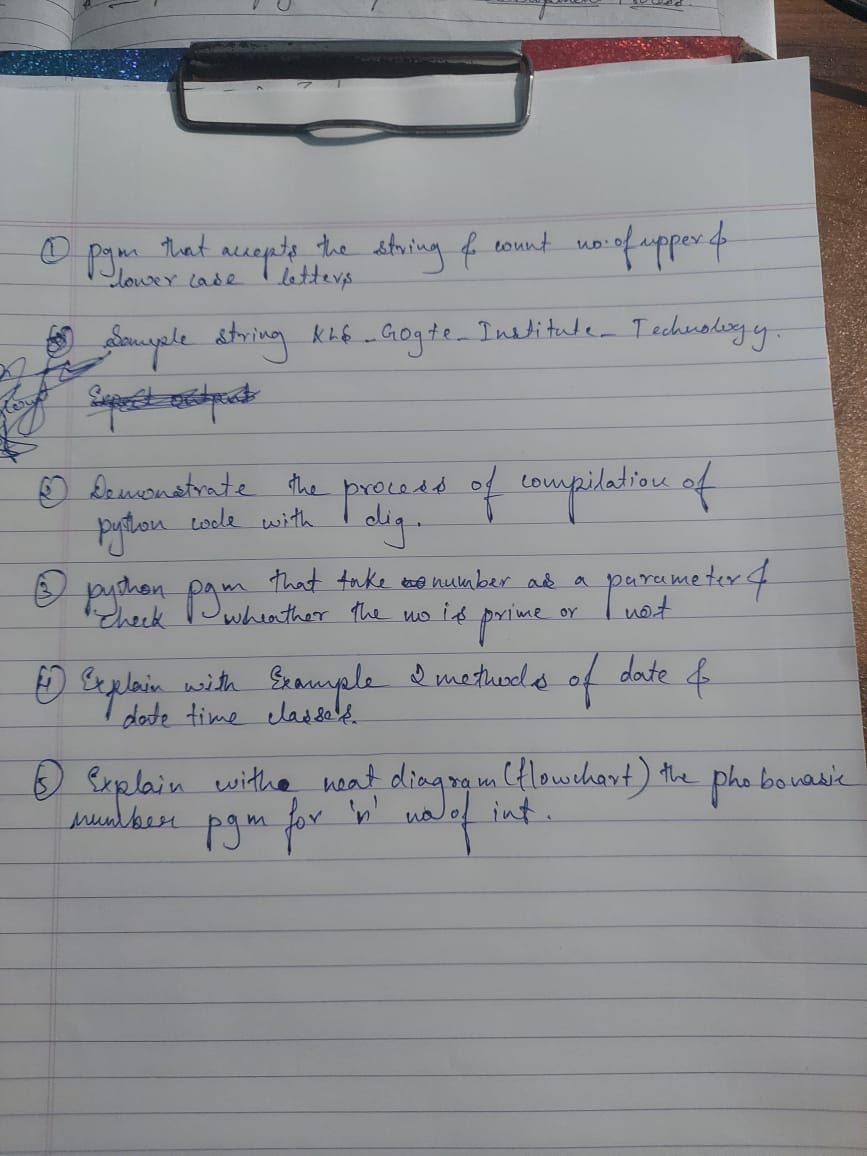 ① pgm that accepts the string & count no. of upper &
lower case letters
Sample string KLS_Gogte_Institute_Technology.
② Demonstrate the process of compilation of
python code with dig.
③ python pgm that take number as a parameter &
check wheather the no is prime or not
④ Explain with Example 2 methods of date &
date time classes.
⑤ Explain with neat diagram (flowchart) the phobonasic
number pgm for 'n' no of int.